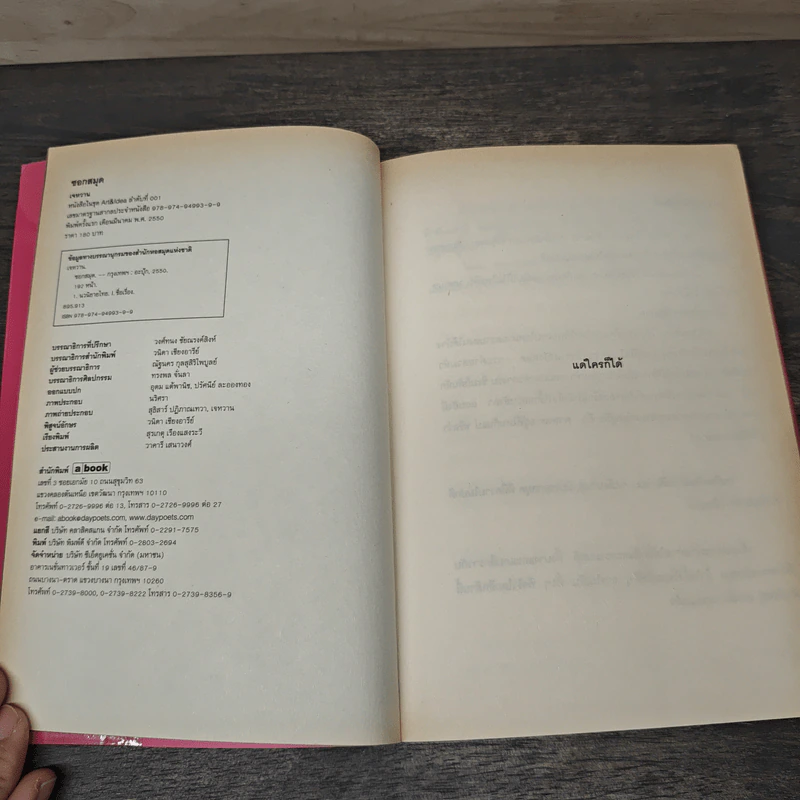 ชอกสมุด
เจทวาน
หนังสือในชุด Art&Idea ลำดับที่ 001
เลขมาตรฐานสากลประจำหนังสือ 978-974-94993-9-9
พิมพ์ครั้งแรก เดือนมีนาคม พ.ศ. 2550
ราคา 180 บาท
ข้อมูลทางบรรณานุกรมของสำนักหอสมุดแห่งชาติ
เจทวาน.
ชอกสมุด. -- กรุงเทพฯ : อะบุ๊ก, 2550.
192 หน้า.
1. นวนิยายไทย. I. ชื่อเรื่อง.
895.913
ISBN 978-974-94993-9-9
บรรณาธิการที่ปรึกษา วงศ์ทนง ชัยณรงค์สิงห์
บรรณาธิการสำนักพิมพ์ วนิดา เชียงอารีย์
ผู้ช่วยบรรณาธิการ ณัฐนคร กุลสุสิริไพบูลย์
บรรณาธิการศิลปกรรม ทรงพล จั่นลา
ออกแบบปก อุดม แต้พานิช, ปรัศนีย์ ละอองทอง
ภาพประกอบ นริศรา
ภาพถ่ายประกอบ สุธิสาร์ ปฏิภาณเทวา, เจทวาน
พิสูจน์อักษร วนิดา เชียงอารีย์
เรียงพิมพ์ สุรเกตุ เรืองแสงระวี
ประสานงานการผลิต วาคารี เสนาวงศ์
สำนักพิมพ์ a book
เลขที่ 3 ซอยเอกมัย 10 ถนนสุขุมวิท 63
แขวงคลองตันเหนือ เขตวัฒนา กรุงเทพฯ 10110
โทรศัพท์ 0-2726-9996 ต่อ 13, โทรสาร 0-2726-9996 ต่อ 27
e-mail: abook@daypoets.com, www.daypoets.com
แยกสี บริษัท คลาสิคสแกน จำกัด โทรศัพท์ 0-2291-7575
พิมพ์ บริษัท พิมพ์ดี จำกัด โทรศัพท์ 0-2803-2694
จัดจำหน่าย บริษัท ซีเอ็ดยูเคชั่น จำกัด (มหาชน)
อาคารเนชั่นทาวเวอร์ ชั้นที่ 19 เลขที่ 46/87-9
ถนนบางนา-ตราด แขวงบางนา กรุงเทพฯ 10260
โทรศัพท์ 0-2739-8000, 0-2739-8222 โทรสาร 0-2739-8356-9
แด่ใครก็ได้